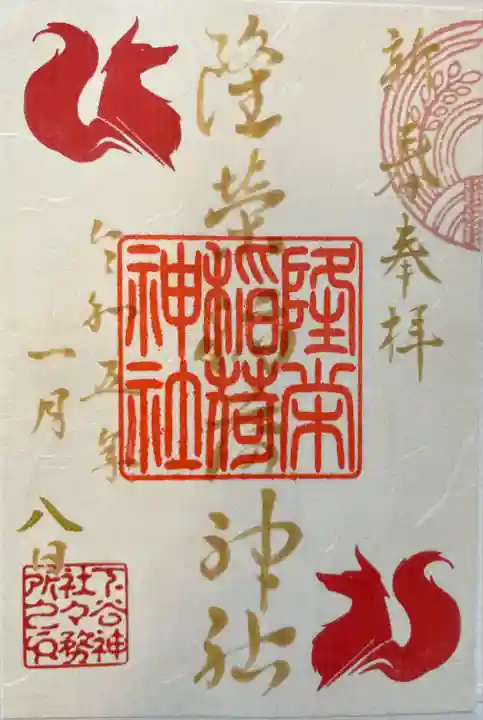 新春奉拝
隆栄稲荷神社
隆栄
稲荷
神社
令和五年
一月
八日
下谷神
社々務
所之印